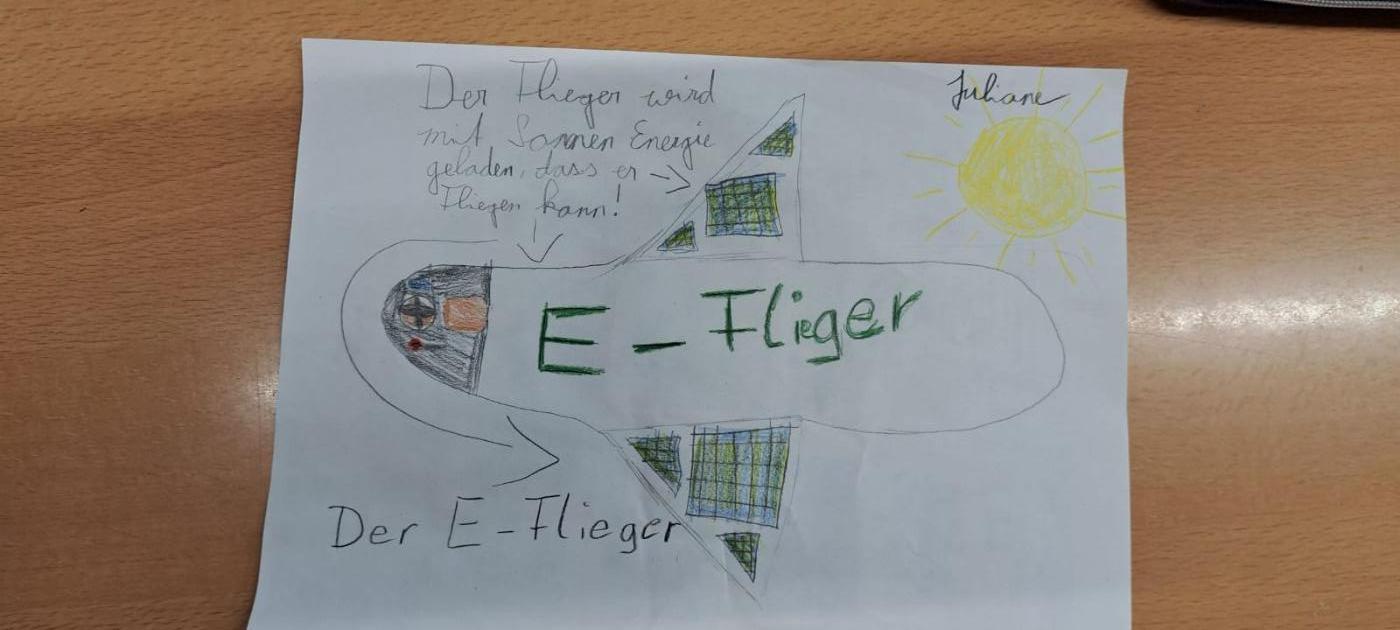 Der Flieger wird
mit Sonnen Energie
geladen, dass er
Fliegen kann!
Juliane
E-Flieger
Der E-Flieger